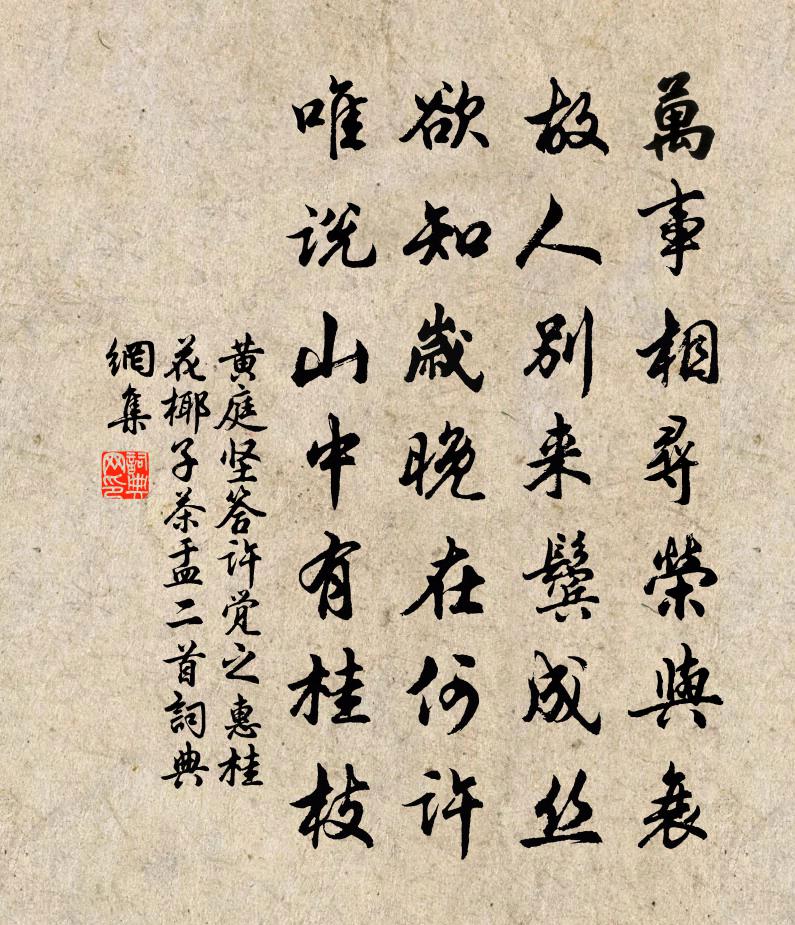 萬事相尋榮與衰
故人別来鬢成丝
欲知歲晚在何许
唯说山中有桂枝
黄庭坚答许觉之惠桂
花椰子茶盂二首詞典
網集
詞典网印